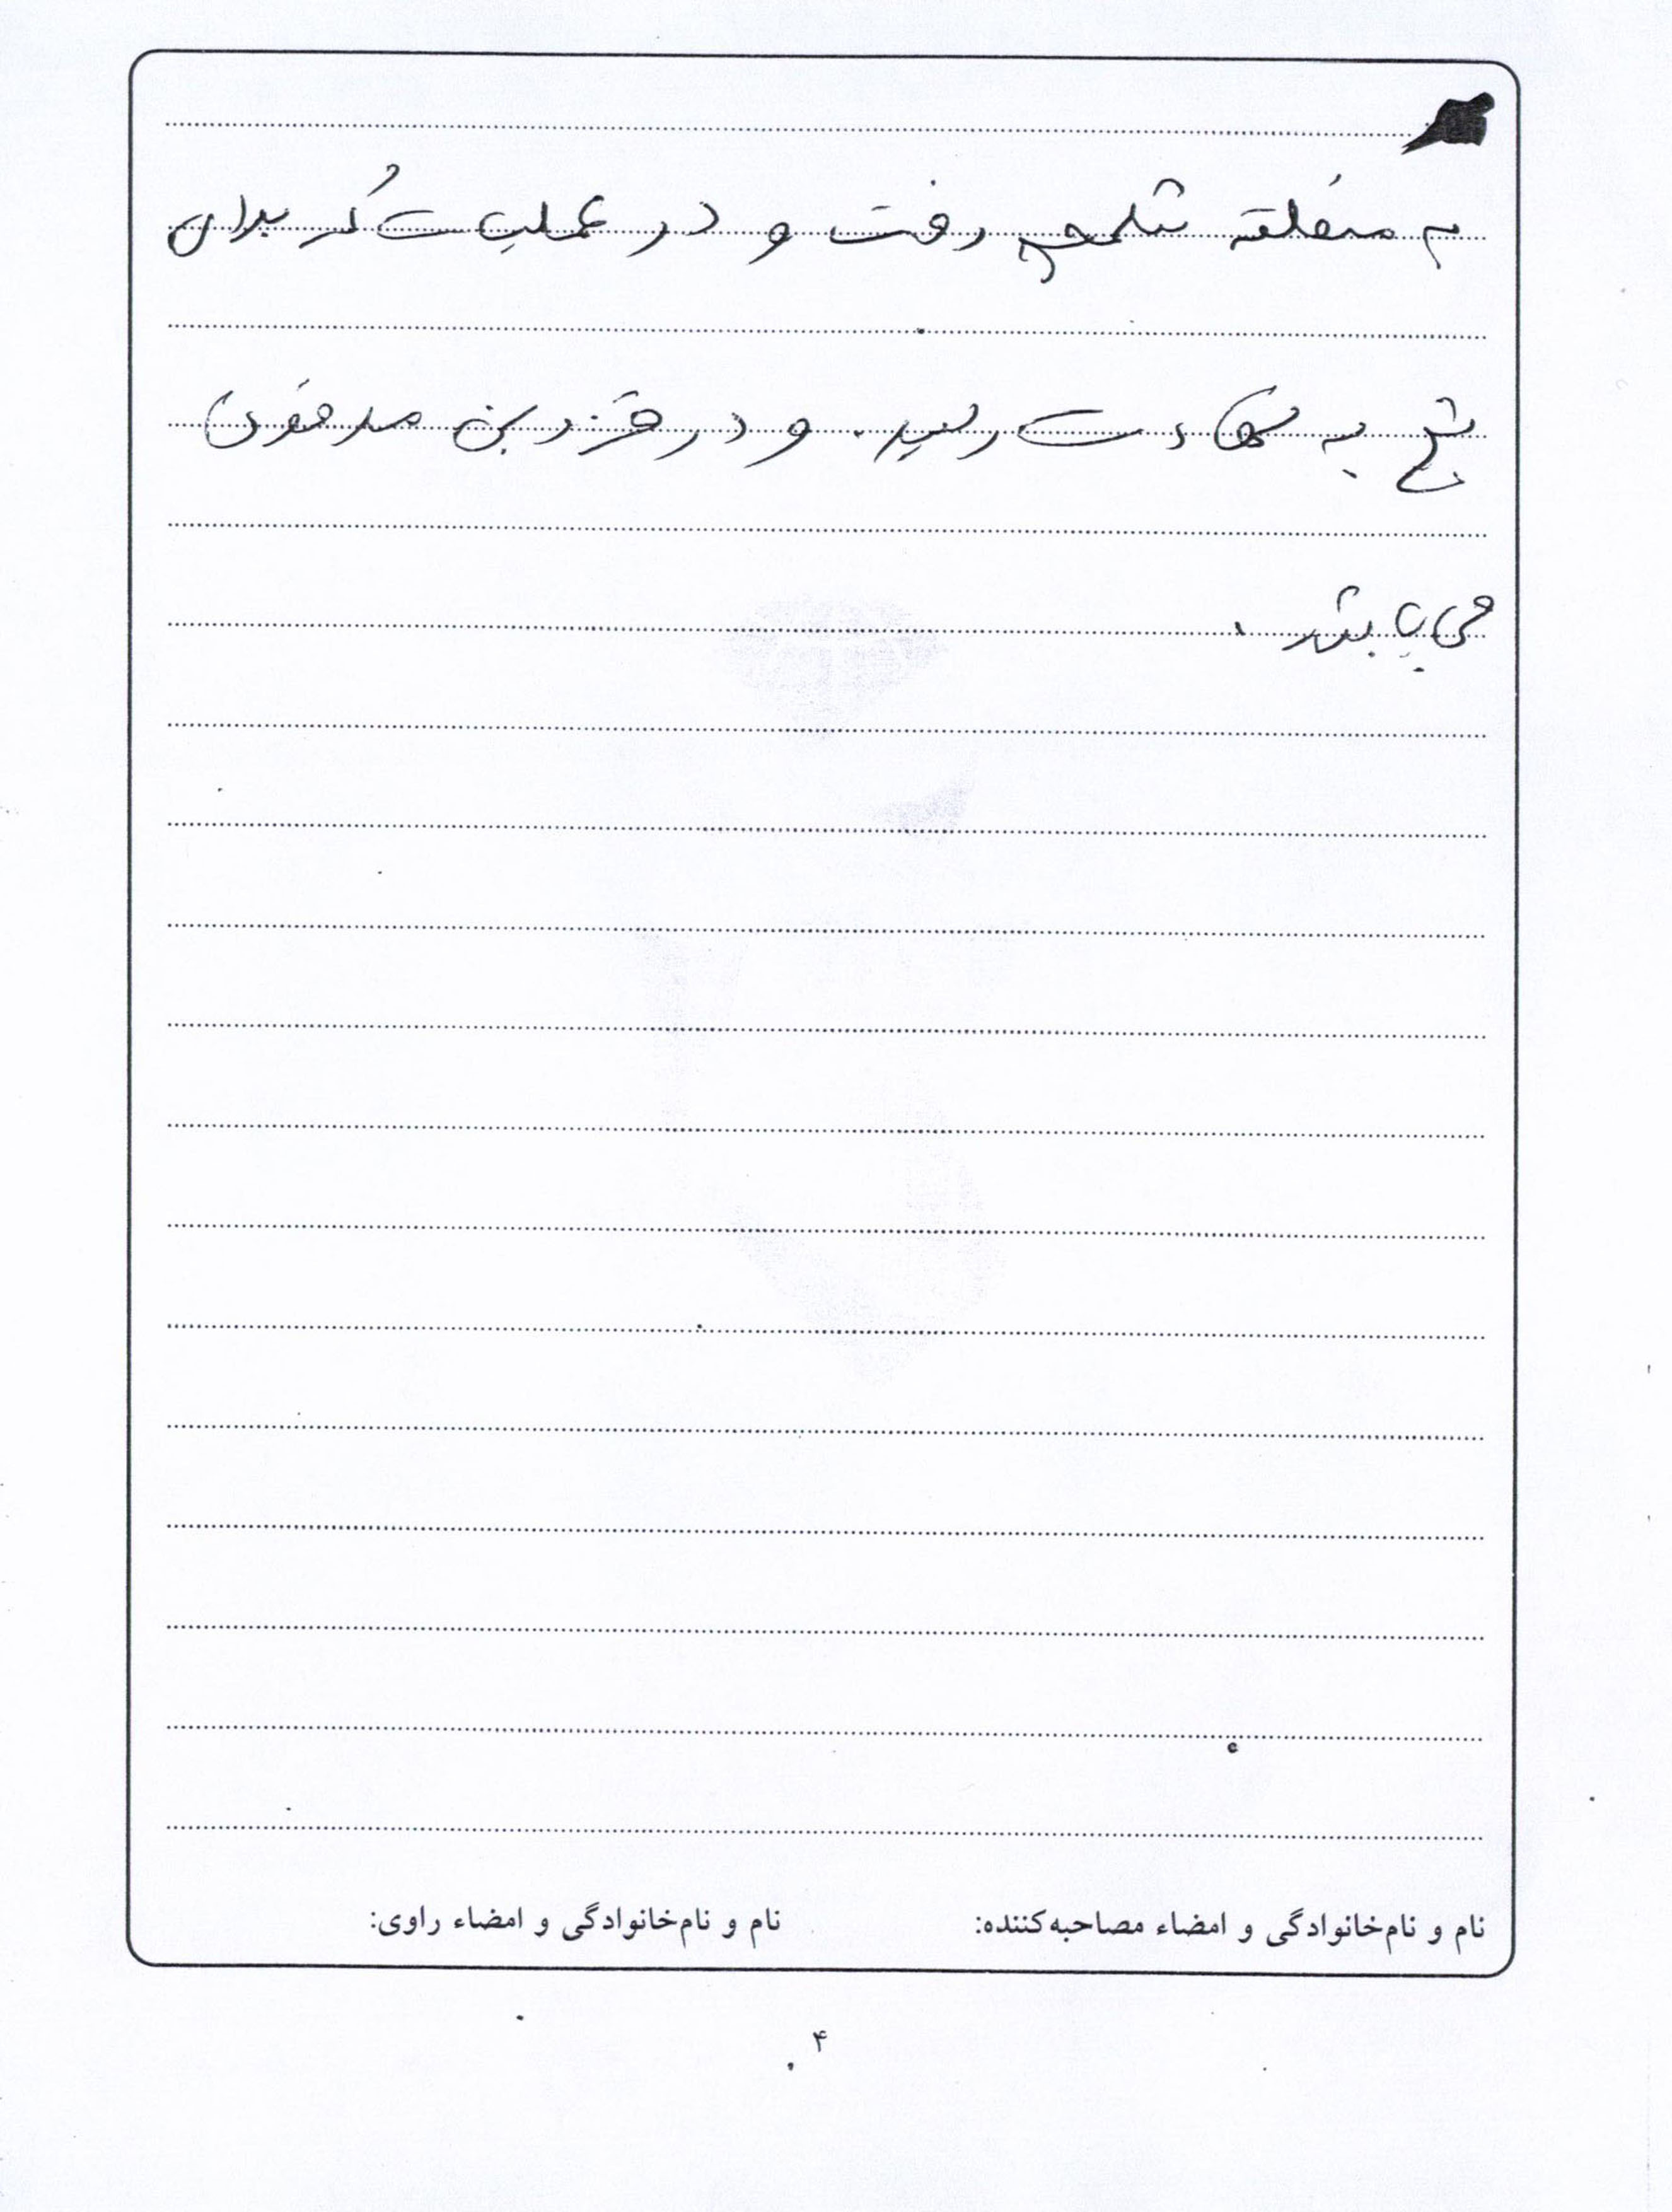 به منطقه شلمچه رفت و در عملیات کربلای
پنج به شهادت رسید. و در قزوین مدفون
می باشد.
نام و نام‌خانوادگی و امضاء مصاحبه‌کننده: نام و نام‌خانوادگی و امضاء راوی:
۴